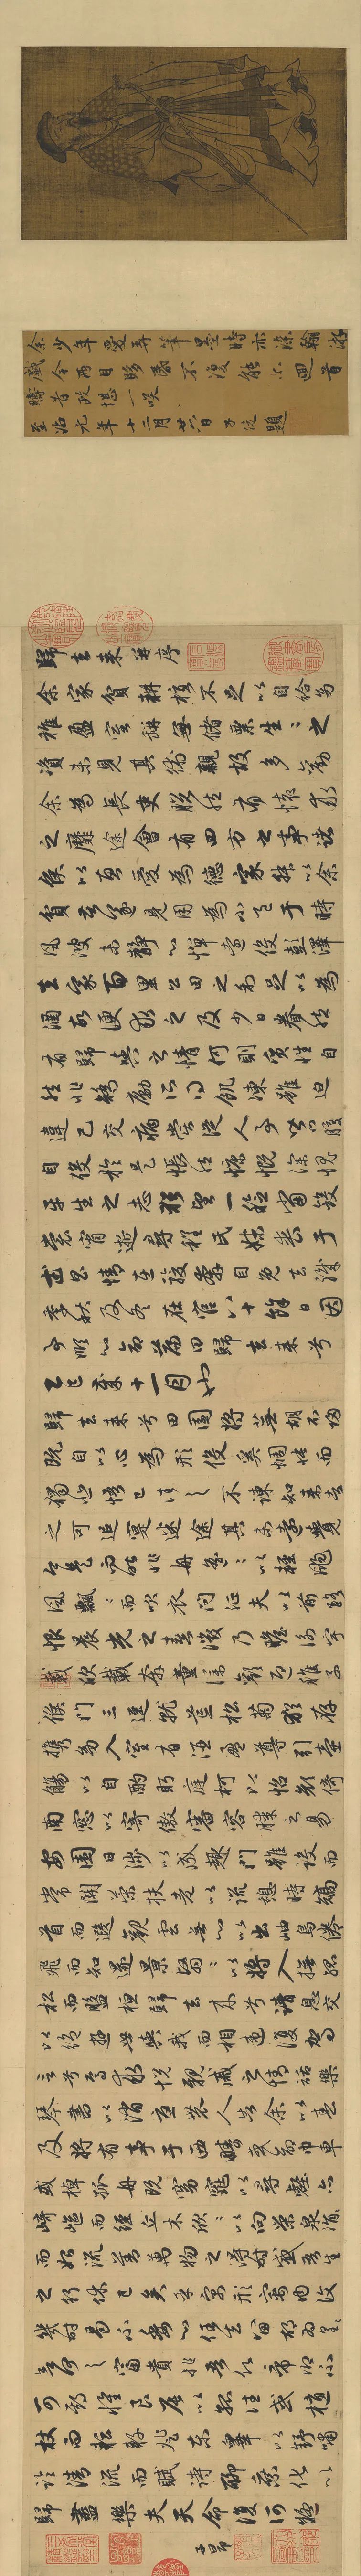 余少年愛弄筆墨時亦染翰游
戲今兩目昏不復能爾迴首
疇昔政堪一笑
至治元年十二月廿六日子昂題
歸去來并序
余家貧耕植不足以自給幼
稚盈室缾無儲粟生々之
資未見其術親故多勸
余為長吏脫然有懷求
之靡途會有四方之事諸
侯以惠愛為德家叔以余
貧苦遂見用為小邑于時
風波未靜心憚遠役彭澤
去家百里公田之利足以為
酒故便求之及少日眷然
有歸與之情何則質性自
然非矯勵所得飢凍雖迫
違己交病嘗從人事皆口腹
自役於是悵然慷慨深愧
平生之志猶望一稔當斂
裳宵逝尋程氏妹喪于
武昌情在駿奔自免去職
仲秋及冬在官八十餘日因
事順心命篇曰歸去來兮
乙巳歲十一月也
歸去來兮田園將蕪胡不歸
既自以心為形役奚惆悵而
獨悲悟已往之不諫知來者
之可追寔迷途其未遠覺
今是而昨非舟遙々以輕颺
風飄々而吹衣問征夫以前路
恨晨光之熹微乃瞻衡宇
載欣載奔童僕歡迎稚子
候門三逕就荒松菊猶存
攜幼入室有酒盈尊引壺
觴以自酌眄庭柯以怡顏倚
南窗以寄傲審容膝之易
安園日涉以成趣門雖設而
常關策扶老以流憩時矯
首而遐觀雲無心以出岫鳥倦
飛而知還景翳々以將入撫孤
松而盤桓歸去來兮請息交
以絕遊世與我而相違復駕
言兮焉求悅親戚之情話樂
琴書以消憂農人告余以春
及將有事于西疇或命巾車
或棹孤舟既窈窕以尋壑亦
崎嶇而經丘木欣々以向榮泉涓々
而始流善萬物之得時感吾生
之行休已矣乎寓形宇內復
幾時曷不委心任去留胡為遑々
欲何之富貴非吾願帝鄉不
可期懷良辰以孤往或植
杖而耘耔登東皋以舒嘯
臨清流而賦詩聊乘化以
歸盡樂夫天命復何疑
子昂